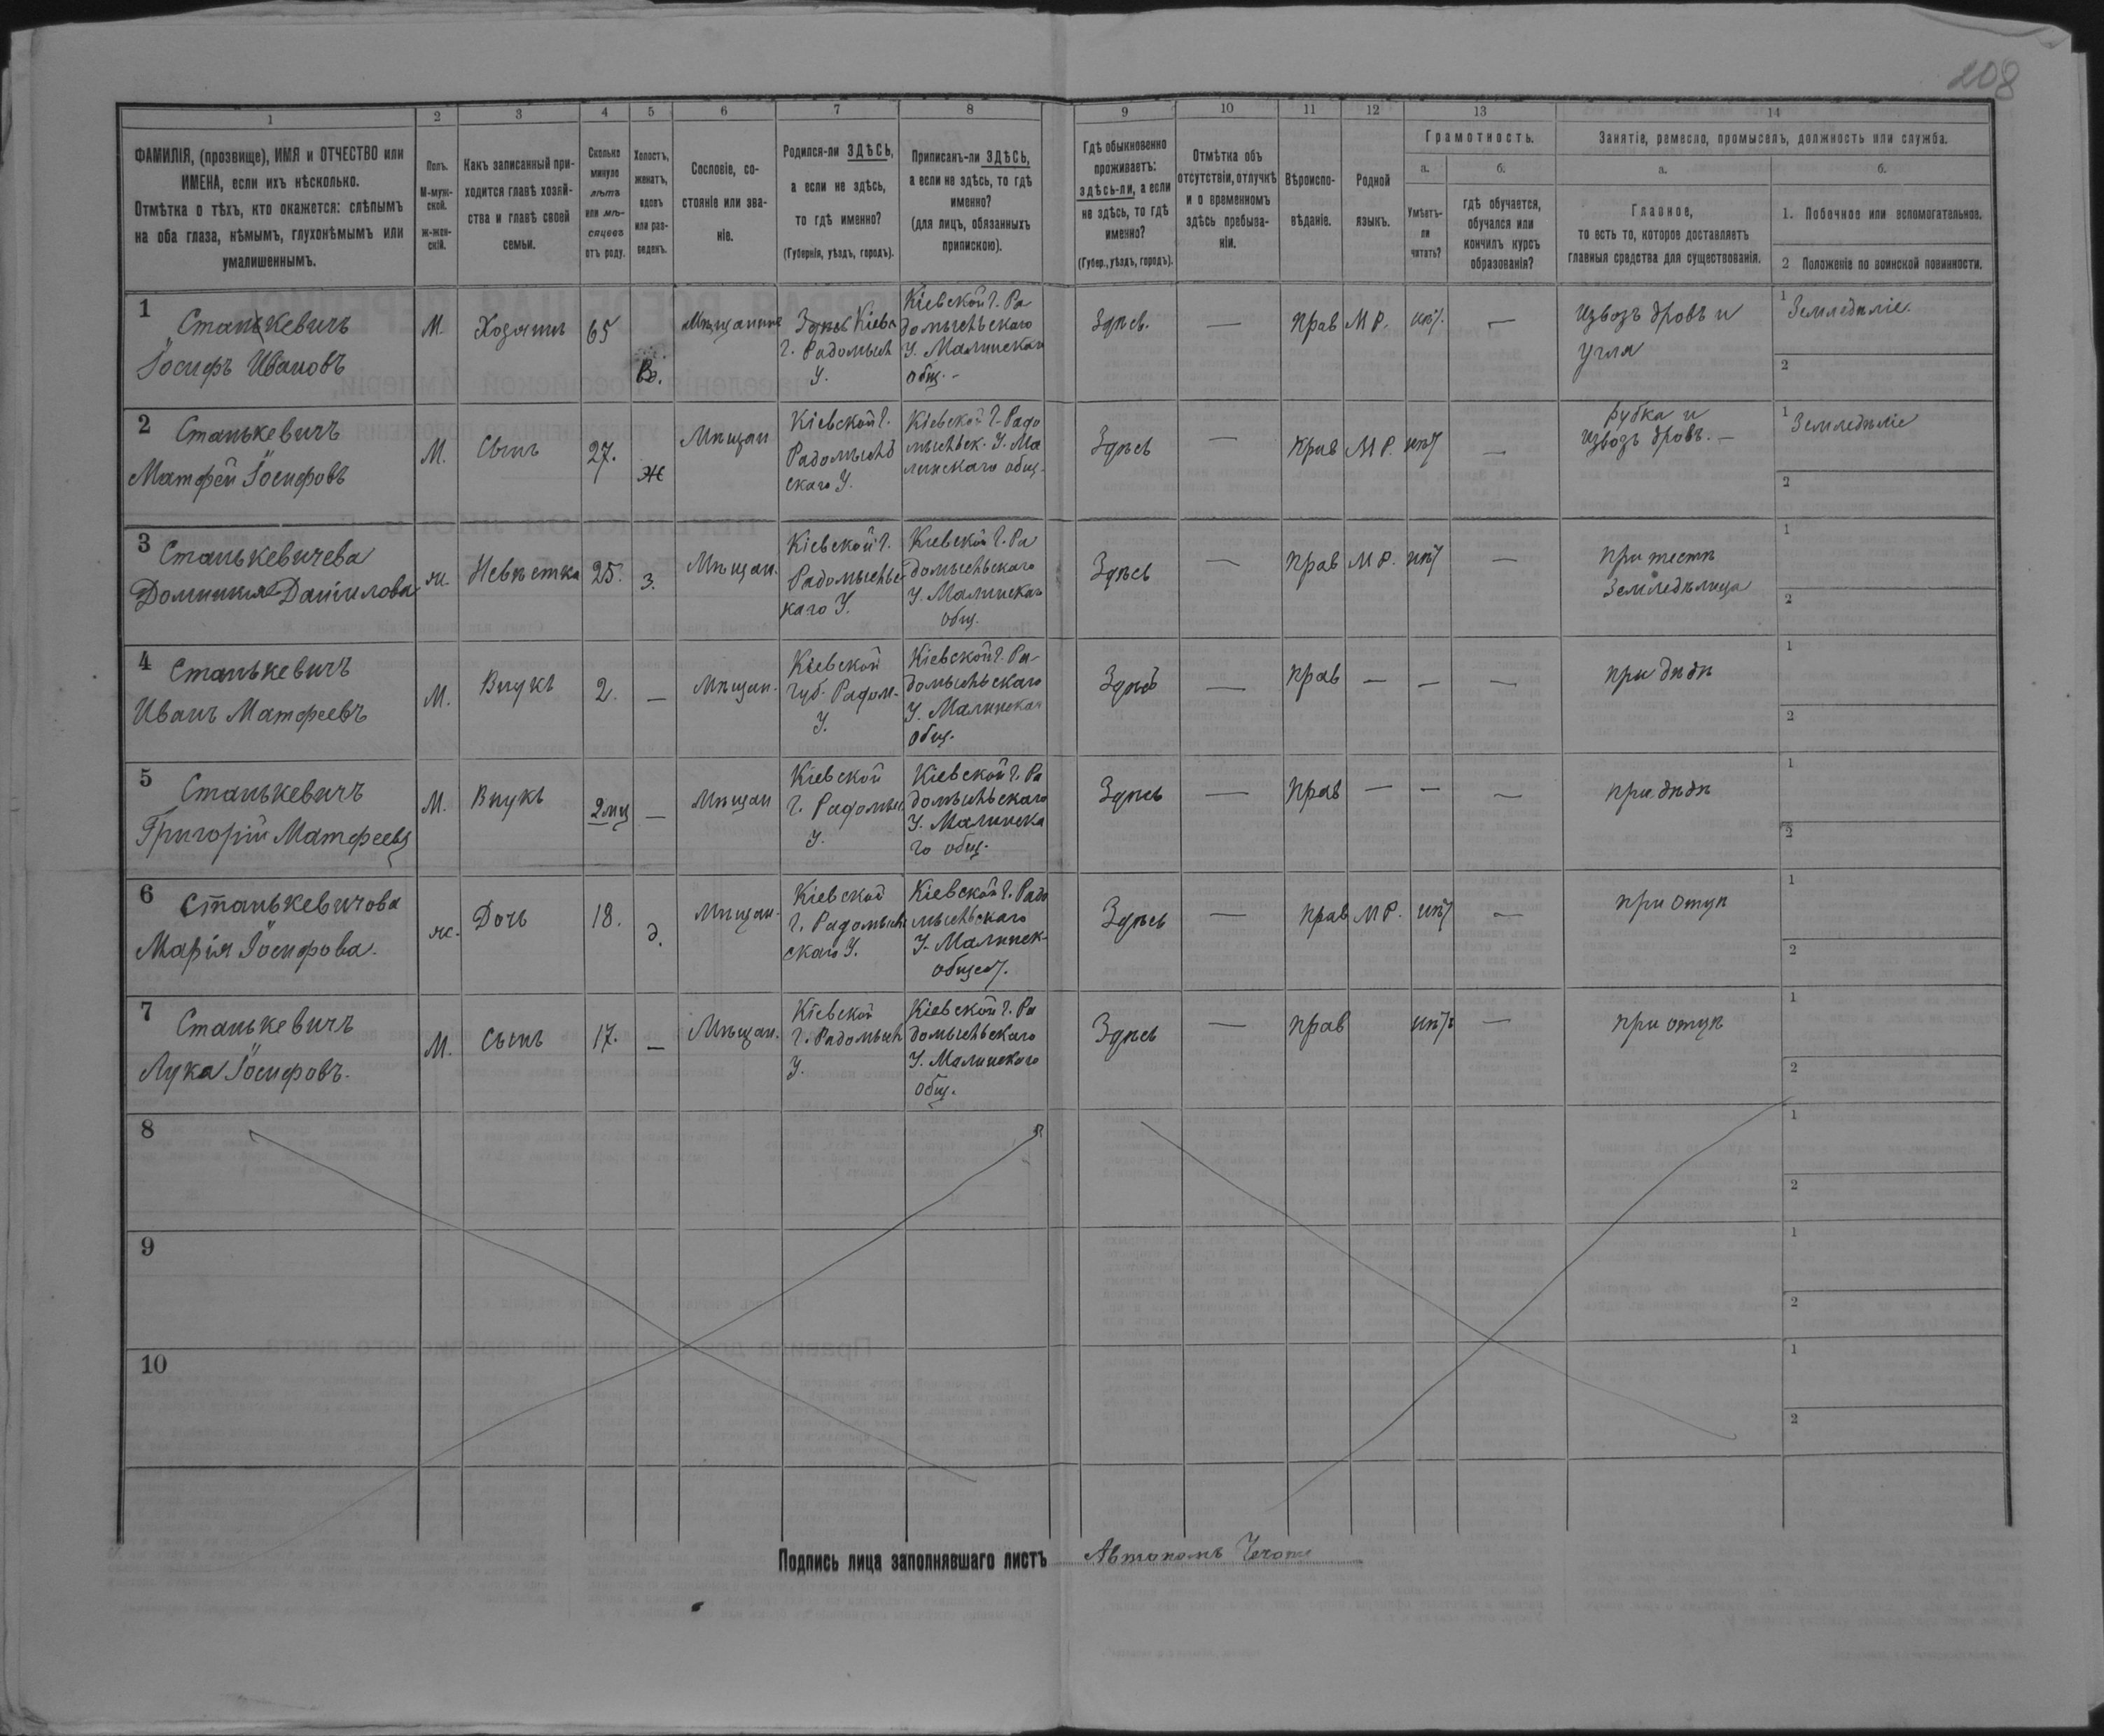 208
1 2 3 4 5 6 7 8 9 10 11 12 13 14
ФАМИЛІЯ, (прозвище), ИМЯ и ОТЧЕСТВО или
ИМЕНА, если ихъ нѣсколько.
Отмѣтка о тѣхъ, кто окажется: слѣпымъ
на оба глаза, нѣмымъ, глухонѣмымъ или
умалишеннымъ.
Полъ.
М-муж-
ской.
Ж-жен-
скій.
Какъ записанный при-
ходится главѣ хозяй-
ства и главѣ своей
семьи.
Сколько
минуло
лѣтъ
или мѣ-
сяцевъ
отъ роду.
Холостъ,
женатъ,
вдовъ
или раз-
веденъ.
Сословіе, со-
стояніе или зва-
ніе.
Родился-ли ЗДѢСЬ,
а если не здѣсь,
то гдѣ именно?
(Губернія, уѣздъ, городъ).
Приписанъ-ли ЗДѢСЬ,
а если не здѣсь, то гдѣ
именно?
(для лицъ, обязанныхъ
припискою).
Гдѣ обыкновенно
проживаетъ:
здѣсь-ли, а если
не здѣсь, то гдѣ
именно?
(Губер., уѣздъ, городъ).
Отмѣтка объ
отсутствіи, отлучкѣ
и о временномъ
здѣсь пребыва-
ніи.
Вѣроиспо-
вѣданіе.
Родной
языкъ.
Грамотность.
а.
Умѣетъ-
ли
читать?
б.
гдѣ обучается,
обучался или
кончилъ курсъ
образованія?
Занятіе, ремесло, промыселъ, должность или служба.
а.
Главное,
то есть то, которое доставляетъ
главныя средства для существованія.
б.
1. Побочное или вспомогательное.
2 Положеніе по воинской повинности.
1
Станькевичъ
Іосифъ Ивановъ
М.
Хозяинъ
65
В.
Мѣщанинъ
Здѣсь Кіевс
г. Радомысл
У.
Кіевской г. Ра
домысльскаго
У. Малинскаго
общ. -
Здѣсь.
—
Прав
М Р.
нѣт.
—
Извозъ дровъ и
угля
1 Земледѣліе.
2
2
Станькевичъ
Матфей Іосифовъ
М.
Сынъ
27.
Ж
Мѣщан
Кіевской г.
Радомысль
скаго У.
Кіевской г. Радо
мысльск. У. Ма
линскаго общ.
Здѣсь
—
Прав
М Р.
нѣт
—
Рубка и
извозъ дровъ. —
1 Земледѣліе
2
3
Станькевичева
Домникія Даніилова
ж.
Невѣстка
25.
З.
Мѣщан.
Кіевской г.
Радомысльс
каго У.
Кіевской г. Ра
домысльскаго
У. Малинскаго
общ.
Здѣсь
—
Прав
М Р.
нѣт
—
при тестѣ
Земледѣлица
1
2
4
Станькевичъ
Иванъ Матфеевъ
М.
Внукъ
2.
—
Мѣщан.
Кіевской
губ. Радом.
У.
Кіевской г. Ра-
домысльскаго
У. Малинскаго
общ.
Здѣсь
—
Прав
—
—
—
при дѣдѣ
1
2
5
Станькевичъ
Григорій Матфеевъ
М.
Внукъ
2 мц
—
Мѣщан
Кіевской
г. Радомыс
У.
Кіевской г. Ра
домысльскаго
У. Малинска
го общ.
Здѣсь
—
Прав
—
—
—
при дѣдѣ
1
2
6
Станькевичова
Марія Іосифова.
ж.
Дочь
18.
д.
Мѣщан.
Кіевской
г. Радомысль
скаго У.
Кіевской г. Радо
мысльскаго
У. Малинск.
общест.
Здѣсь
—
Прав
М Р.
нѣт
—
при отцѣ
1
2
7
Станькевичъ
Лука Іосифовъ.
М.
Сынъ
17.
—
Мѣщан.
Кіевской
г. Радомысл
У.
Кіевской г. Ра
домысльскаго
У. Малинскаго
общ.
Здѣсь
—
Прав
нѣтъ
—
при отцѣ
1
2
8
1
2
9
1
2
10
1
2
Подпись лица заполнявшаго листъ Автономъ